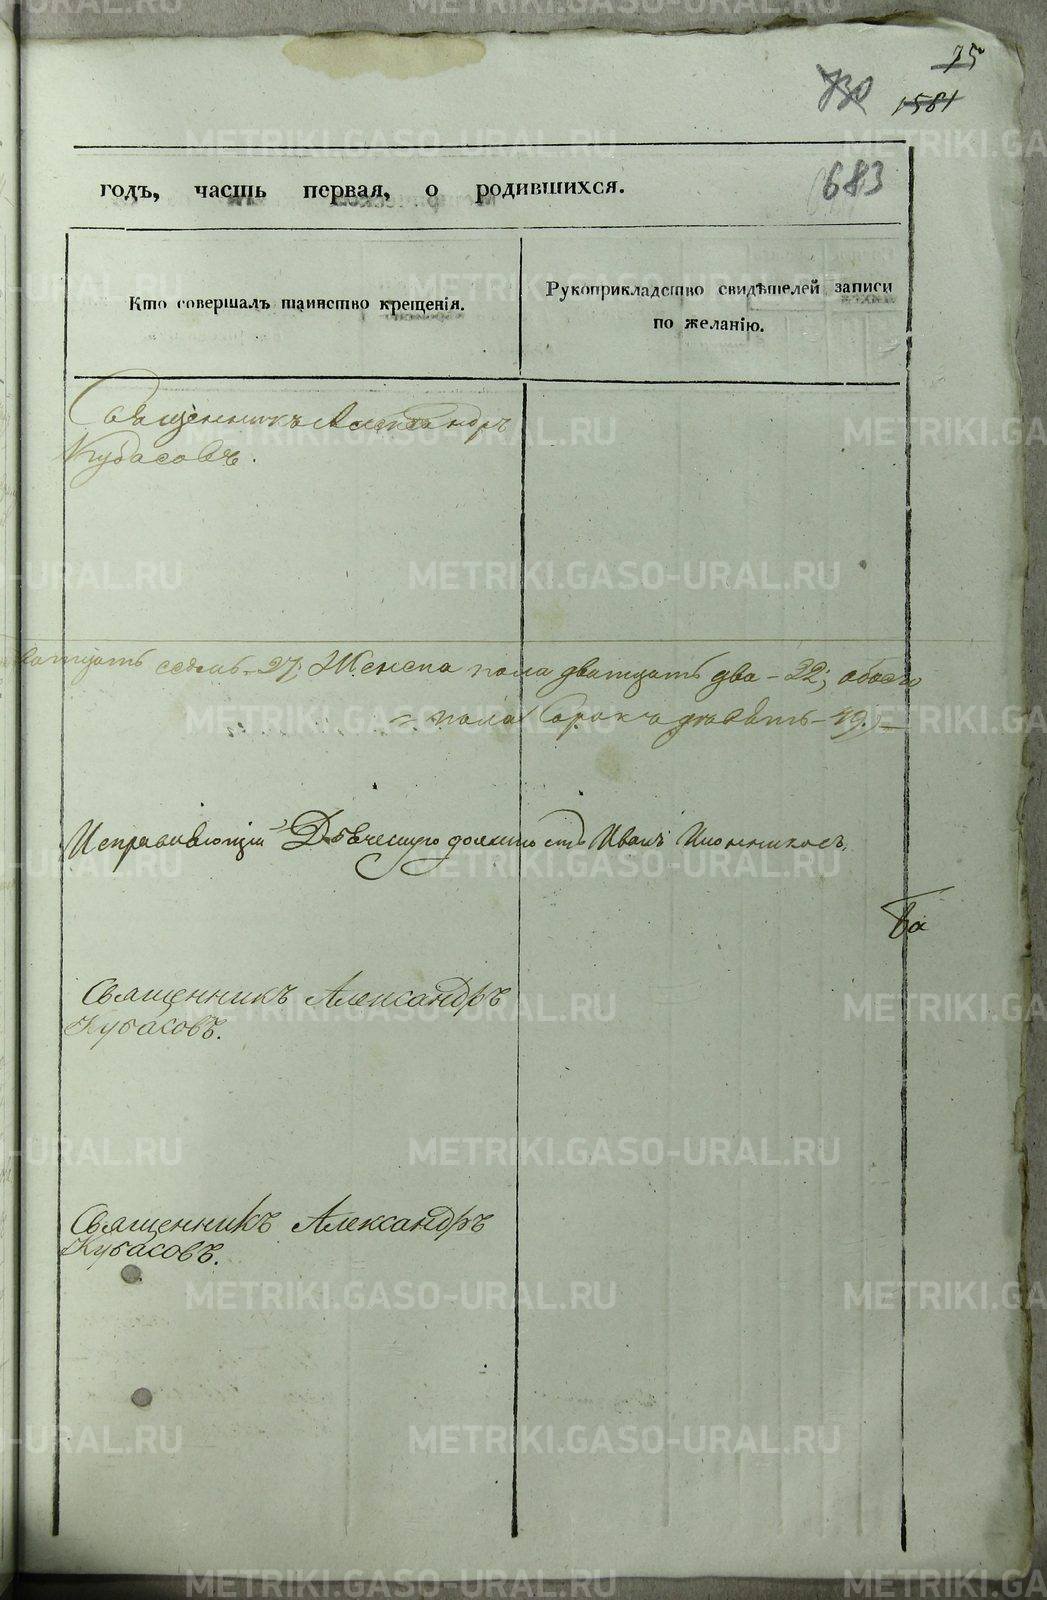 75
730
1581
683
годъ, часть первая, о родившихся.
Кто совершалъ таинство крещенія.
Рукоприкладство свидѣтелей записи
по желанію.
Священникъ Александръ
Кубасовъ.
седмь - 27; Женска пола дватцать два - 22; обоего
пола Сорокъ девять - 49.
Исправляющій должность Иванъ
Священникъ Александръ
Кубасовъ.
Священникъ Александръ
Кубасовъ.
METRIKI.GASO-URAL.RU